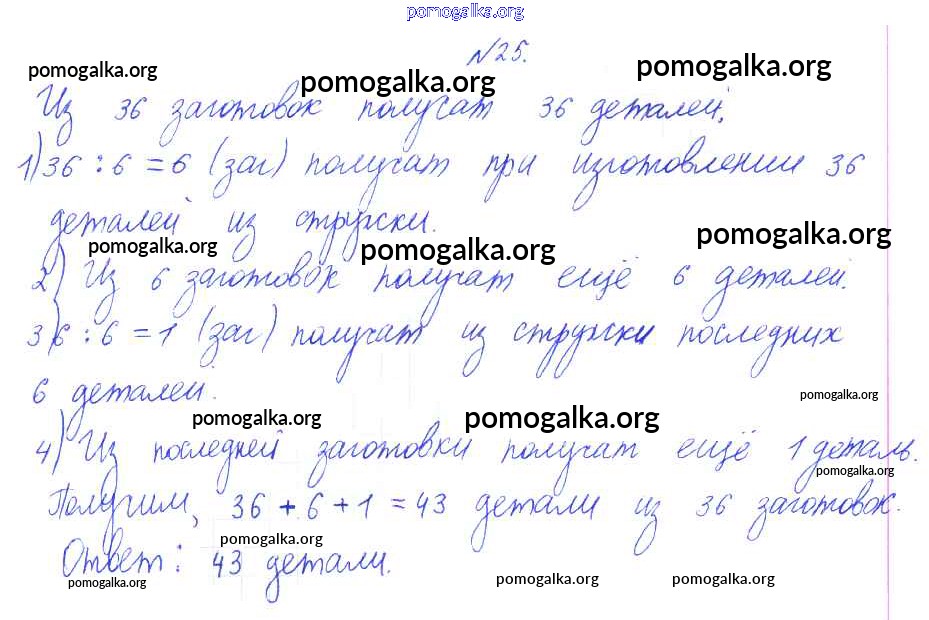 pomogalka.org
№25.
pomogalka.org pomogalka.org pomogalka.org
Из 36 заготовок получат 36 деталей,
1) 36 : 6 = 6 (заг) получат при изготовлении 36
деталей из стружки.
pomogalka.org pomogalka.org pomogalka.org
2) Из 6 заготовок получат ещё 6 деталей.
3) 6 : 6 = 1 (заг) получат из стружки последних
6 деталей.
pomogalka.org
pomogalka.org pomogalka.org
4) Из последней заготовки получат ещё 1 деталь.
pomogalka.org
Получим, 36 + 6 + 1 = 43 детали из 36 заготовок.
pomogalka.org
Ответ: 43 детали.
pomogalka.org pomogalka.org pomogalka.org